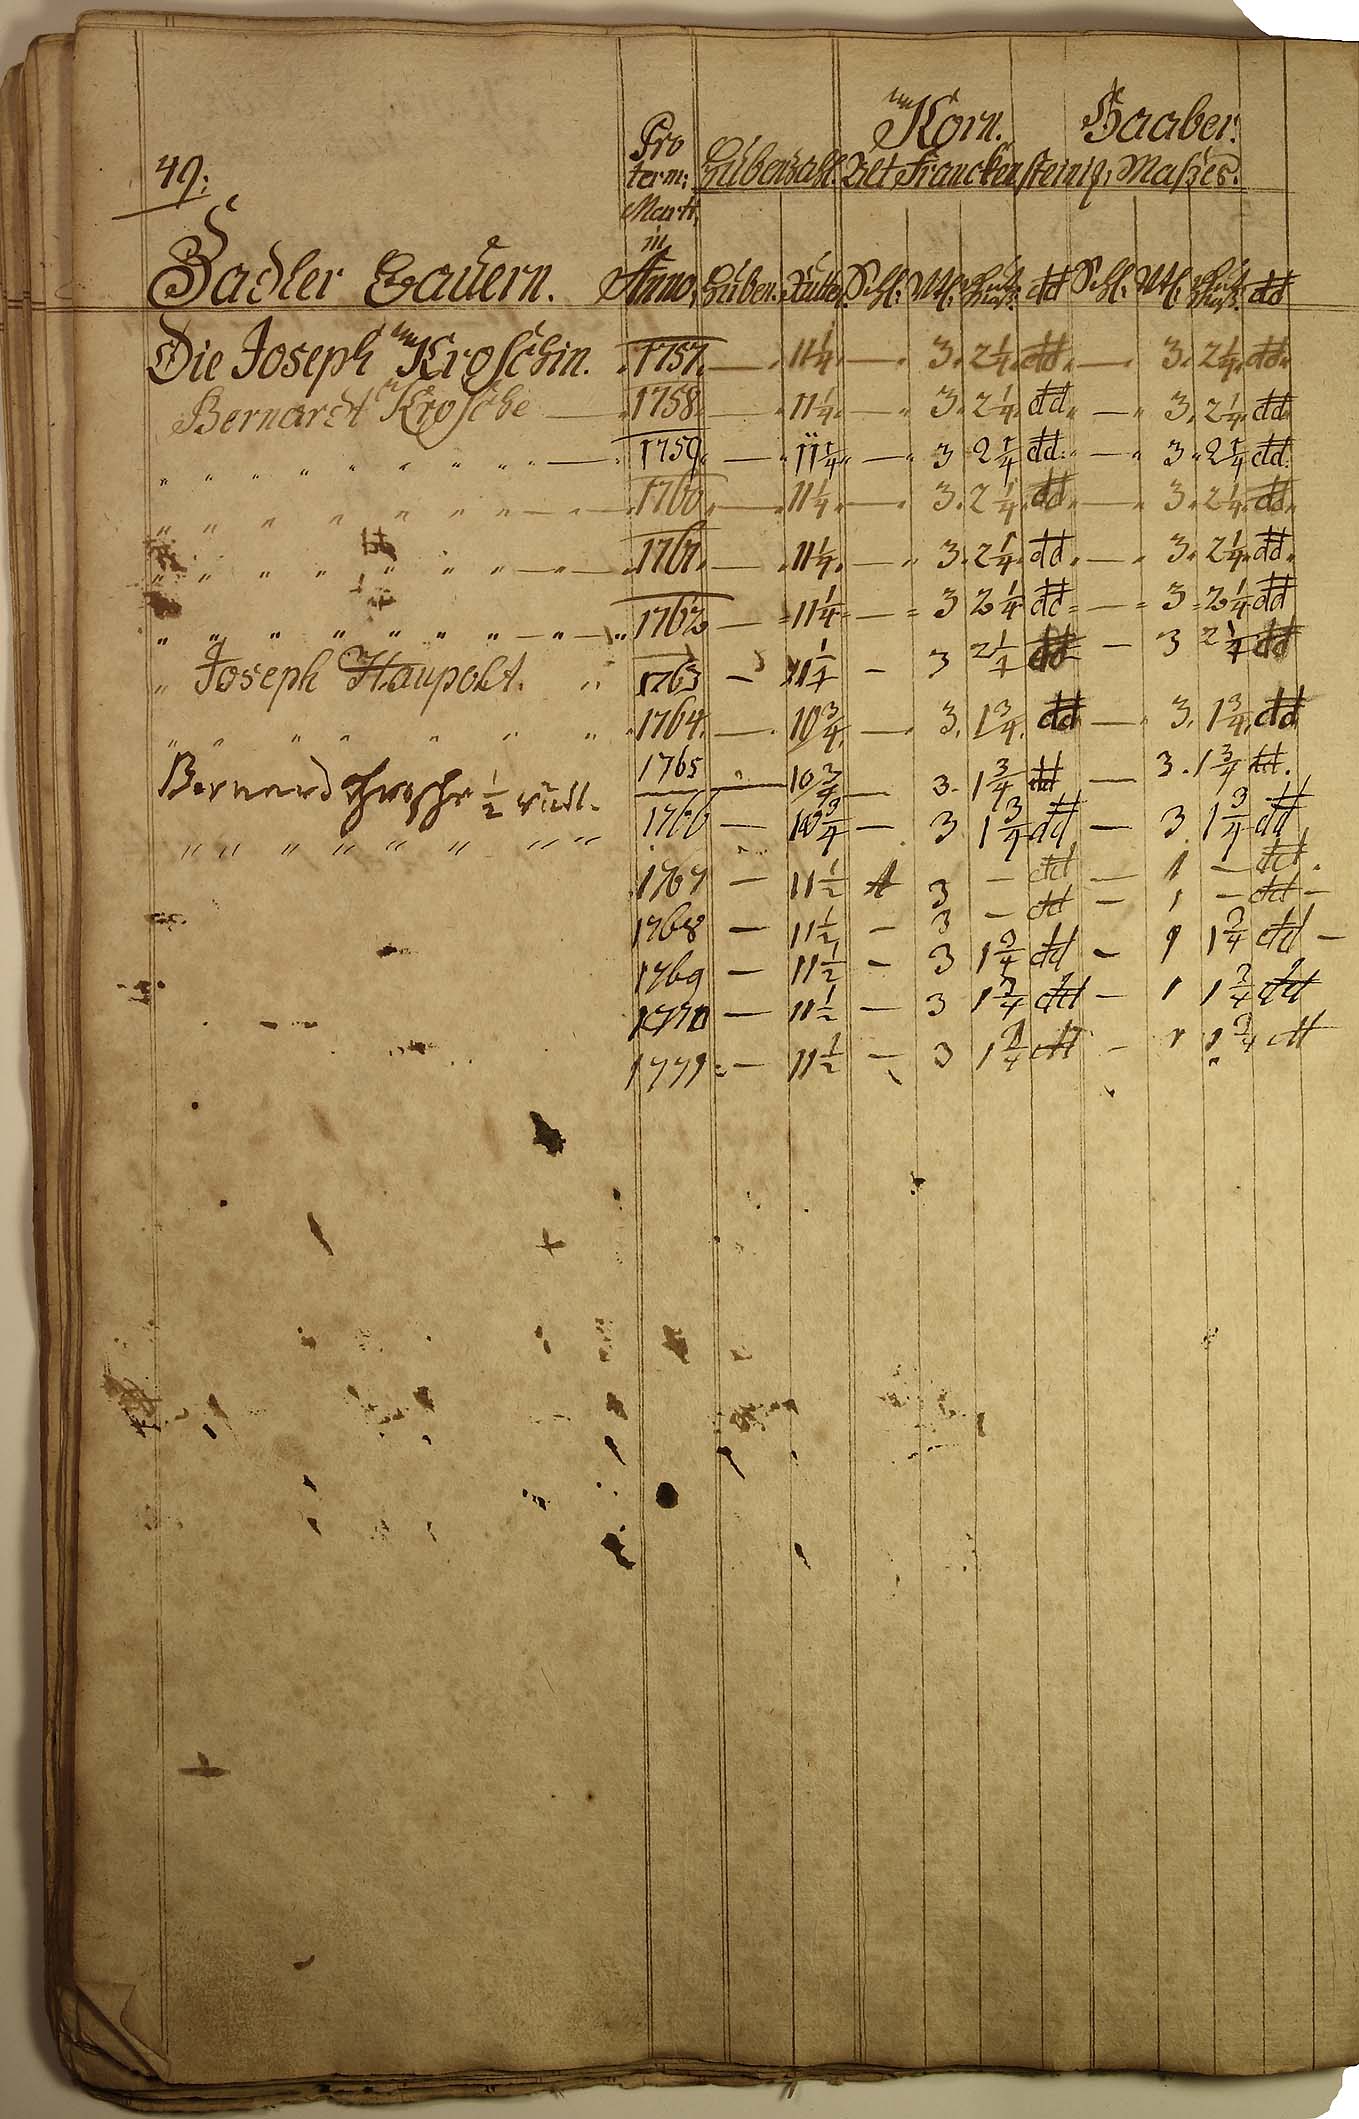 Korn. Haaber.
Pro
49. term: Hubenzahl. Alt Franckensteinig: Maßes.
Marti
in
Zadler Bauern. Anno, Huben. Rutte. Schl: Vtl:
Die Joseph Kroschin. 1757. — 11 1/4. — 3. 2 1/4. dd. — 3. 2 1/4. dd.
Bernardt Krosche — 1758. — 11 1/4. — 3. 2 1/4. dd. — 3. 2 1/4. dd.
" " " " " " " " — 1759. — 11 1/4 — 3 2 1/4 dd. — 3 2 1/4 dd.
" " " " " " " " — 1760. — 11 1/4. — 3. 2 1/4. dd. — 3. 2 1/4. dd.
" " " " " " " — 1761. — 11 1/4. — 3. 2 1/4. dd. — 3. 2 1/4. dd.
" " " " " " " — 1762 — 11 1/4 — 3 2 1/4 dd — 3 2 1/4 dd
" Joseph Haupolt. " 1763 — 11 1/4 — 3 2 1/4 dd — 3 2 1/4 dd
" " " " " " " 1764. — 10 3/4. — 3. 1 3/4. dd — 3. 1 3/4. dd
Bernard Krosche 1/2 1765 — 10 3/4 — 3. 1 3/4 dd — 3. 1 3/4 dd.
" " " " " " " " 1766 — 10 3/4 — 3 1 3/4 dd — 3 1 3/4 dd
1767 — 11 1/2 3 — dd — 1 — dd.
1768 — 11 1/2 — 3 — dd — 1 — dd —
1769 — 11 1/2 — 3 1 3/4 dd — 1 1 3/4 dd —
1770 — 11 1/2 — 3 1 3/4 dd — 1 1 3/4 dd
1771 — 11 1/2 — 3 1 3/4 dd — 1 1 3/4 dd